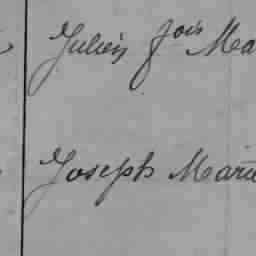 Julien fois Ma
Joseph Marie